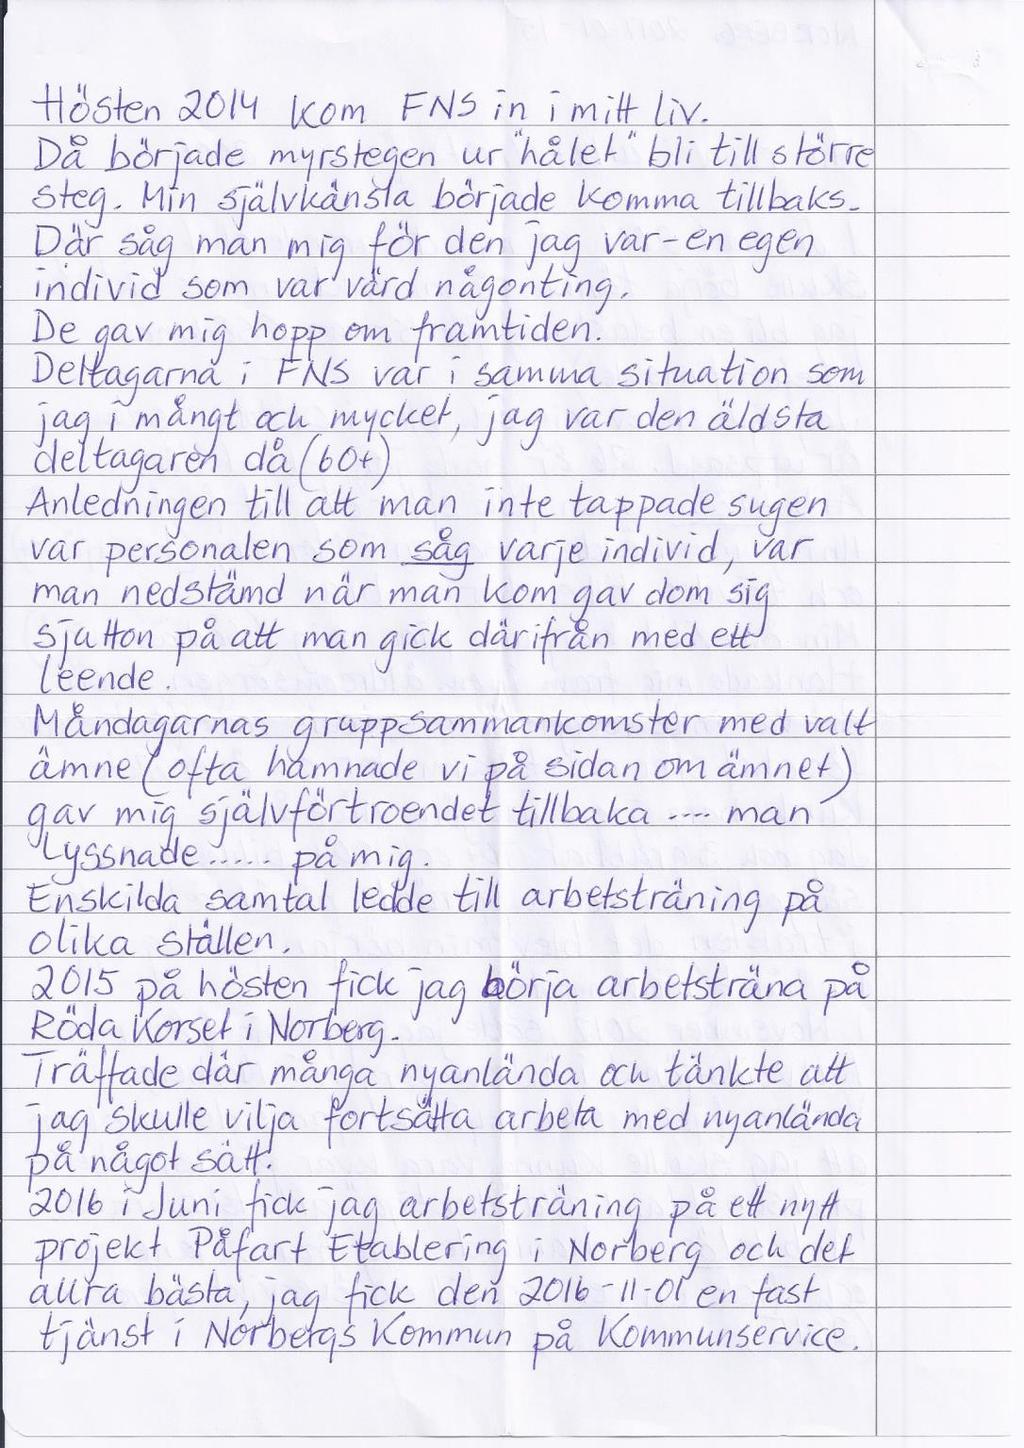 Hösten 2014 kom FNS in i mitt liv.
Då började myrstegen ur "hålet" bli till större
steg. Min självkänsla började komma tillbaks.
Där såg man mig för den jag var-en egen
individ som var värd någonting.
De gav mig hopp om framtiden.
Deltagarna i FNS var i samma situation som
jag i mångt och mycket, jag var den äldsta
deltagaren då (60+)
Anledningen till att man inte tappade sugen
var personalen som såg varje individ, var
man nedstämd när man kom gav dom sig
sjutton på att man gick därifrån med ett
leende.
Måndagarnas gruppsammankomster med valt
ämne (ofta hamnade vi på sidan om ämnet)
gav mig självförtroendet tillbaka .... man
lyssnade...... på mig.
Enskilda samtal ledde till arbetsträning på
olika ställen.
2015 på hösten fick jag börja arbetsträna på
Röda Korset i Norberg.
Träffade där många nyanlända och tänkte att
jag skulle vilja fortsätta arbeta med nyanlända
på något sätt.
2016 i Juni fick jag arbetsträning på ett nytt
projekt Påfart Etablering i Norberg och det
allra bästa, jag fick den 2016-11-01 en fast
tjänst i Norbergs Kommun på Kommunservice.